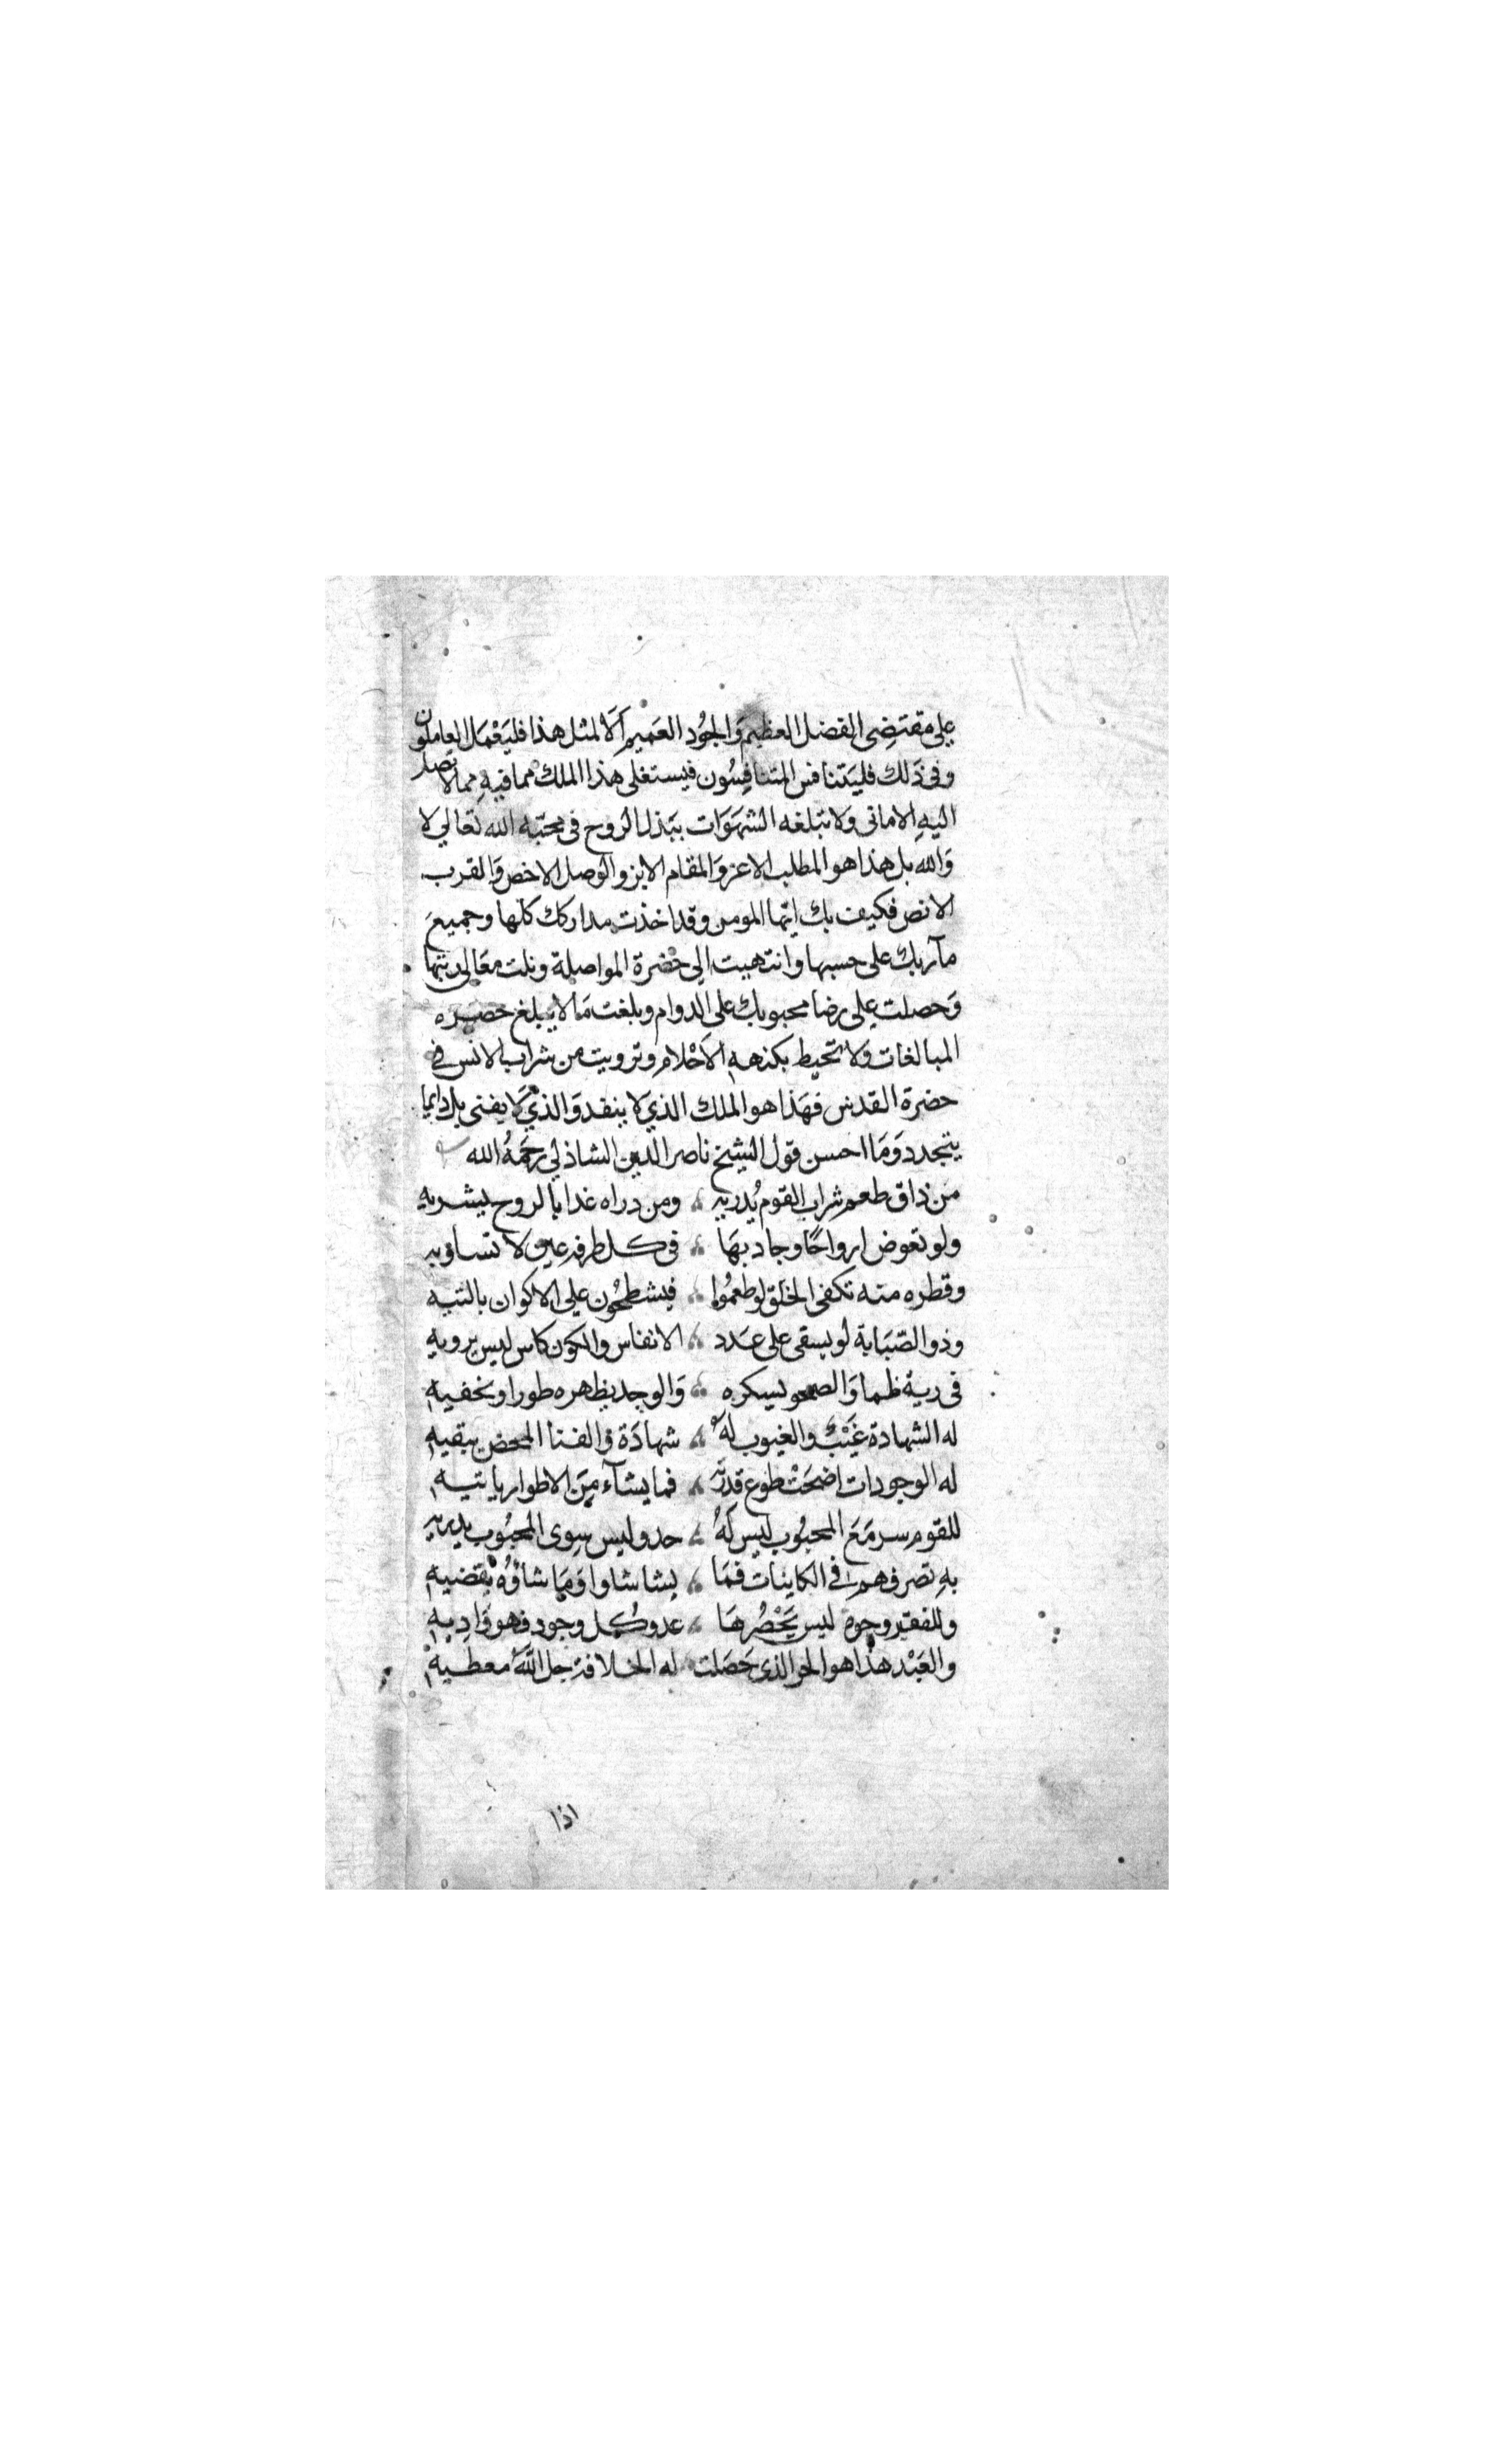 على مقتضى الفضل العظيم والجود العميم ألا لمثل هذا فليعمل العاملون
وفي ذلك فليتنافس المتنافسون فيستغلى هذا الملك مما فيه مما لا تصل
اليه الامانى ولا تبلغه الشهوات ببذل الروح فى محبته الله تعالي لا
والله بل هذا هو المطلب الاعز والمقام الابز والوصل الاخص والقرب
الانص فكيف بك ايها المومن وقد اخذت مداركك كلها وجميع
مآربك على حسبها وانتهيت الى حضرة المواصلة ونلت معالى رتبها
وحصلت على رضا محبوبك على الدوام وبلغت ما لا يبلغ حصره
المبالغات ولا تحيط بكنهه الاحلام وترويت من شراب الانس في
حضرة القدس فهذا هو الملك الذي لا ينفد والذي لا يفنى بل دايما
يتجدد وما احسن قول الشيخ ناصر الدين الشاذلي رحمه الله
من ذاق طعم شراب القوم يدريه ومن دراه غدا بالروح يشريه
ولو تعوض ارواحا وجاد بها فى كل طرفة عين لا تساويه
وقطره منه تكفى الخلق لو طعموا فيشطحون على الاكوان بالتيه
وذو الصبابة لو يسقى على عدد الانفاس والكون كاس ليس يرويه
فى ريه ظما والصحو يسكره والوجد يظهره طورا ويخفيه
له الشهادة غيب والغيوب له شهادة والفنا المحض يبقيه
له الوجودات اضحت طوع قدرته فما يشآء من الاطوار ياتيه
للقوم سر مع المحبوب ليس له حد وليس سوى المحبوب يدريه
به تصرفهم في الكاينات فما يشا شاوا وما شاؤه يقضيه
وللفقير وجوه ليس يحصرها عد وكل وجود فهو واديه
والعبد هذا هو الحر الذى حصلت له الخلافة جل الله معطيه
اذا